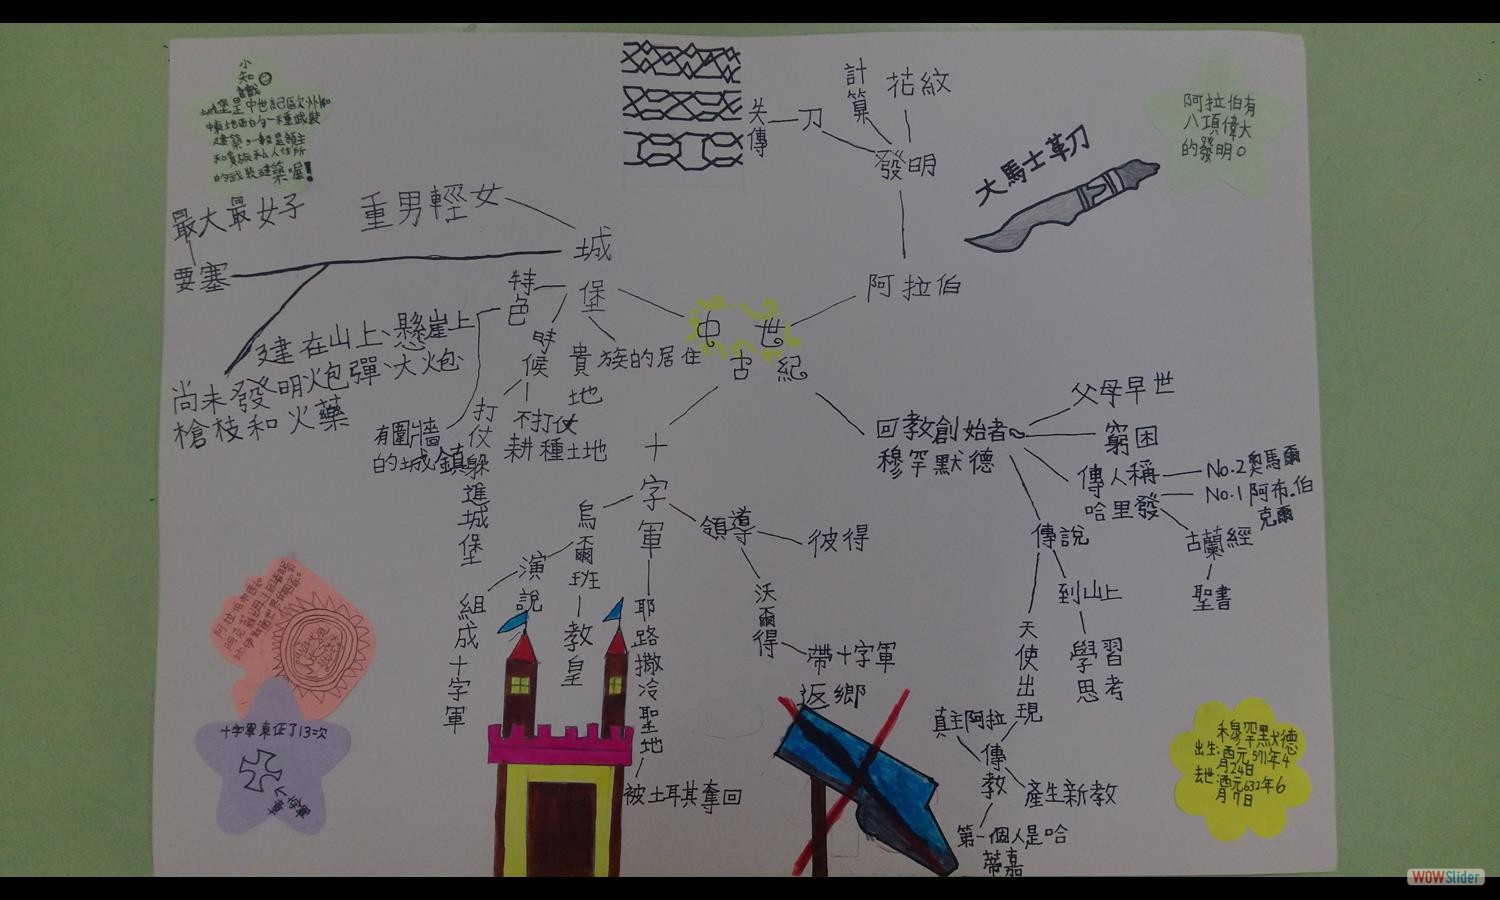 小
知
會戰
城堡是中世紀歐洲和
中東地區的一種武裝
建築,一般是領主
和貴族私人住所
的武裝建築喔!
最大最女子
要塞
重男輕女
城
堡
特
色
時
候
貴族的居住
地
建在山上、懸崖上
尚未發明炮彈、大炮
槍枝和火藥
有圍牆
的城鎮
打仗躲進城堡
不打仗
耕種土地
失傳
刀
計算
花紋
發明
大馬士革刀
阿拉伯有
八項偉大
的發明。
阿拉伯
中世
古紀
十字軍
烏爾班
演說
組成十字軍
教皇
領導
彼得
沃爾得
帶十字軍
返鄉
耶路撒冷聖地
被土耳其奪回
回教創始者
穆罕默德
父母早世
窮困
傳人稱
哈里發
No.2奧馬爾
No.1阿布.伯
克爾
古蘭經
聖書
傳說
到山上
學習
思考
天使出現
真主阿拉
傳教
產生新教
第一個人是哈
蒂嘉
十字軍東征了13次
穆罕默德
出生:西元571年4
月24日
去世:西元632年6
月7日
WOWSlider